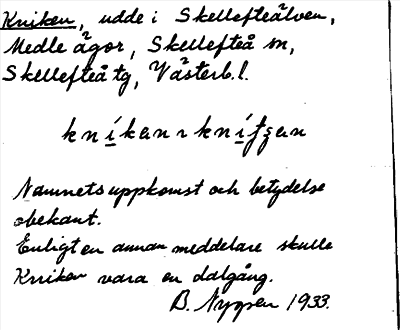 Kniken, udde i Skellefteälven,
Medle ägor, Skellefteå sn,
Skellefteå tg, Västerb. l.
Namnets uppkomst och betydelse
obekant.
Enligt en annan meddelare skulle
Kniken vara en dalgång.
B. Nygren 1933.